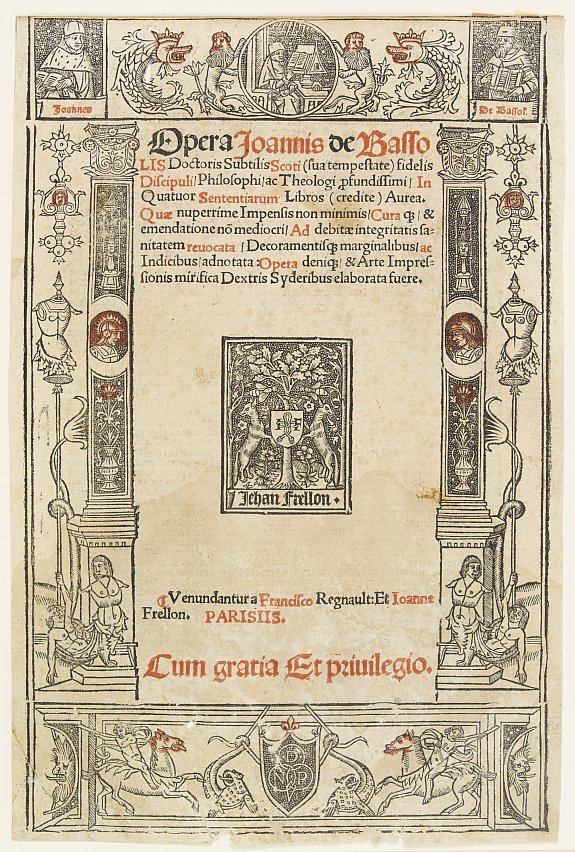 Joannes
De Bassol.
Opera Joannis de Basso
LIS Doctoris Subtilis Scoti (sua tempestate) fidelis
Discipuli/Philosophi/ac Theologi ꝓfundissimi/ In
Quatuor Sententiarum Libros (credite) Aurea.
Quæ nuperrime Impensis non minimis/Cura qꝫ/&
emendatione nō mediocri/Ad debitæ integritatis sa-
nitatem reuocata/Decoramentisqꝫ marginalibus/ac
Indicibus/adnotata:Opera deniqꝫ/&Arte Impres-
sionis mirifica Dextris Syderibus elaborata fuere.
Jehan Frellon
¶Venundantur a Francisco Regnault:Et Ioanne
Frellon. PARISIIS.
Cum gratia Et priuilegio.